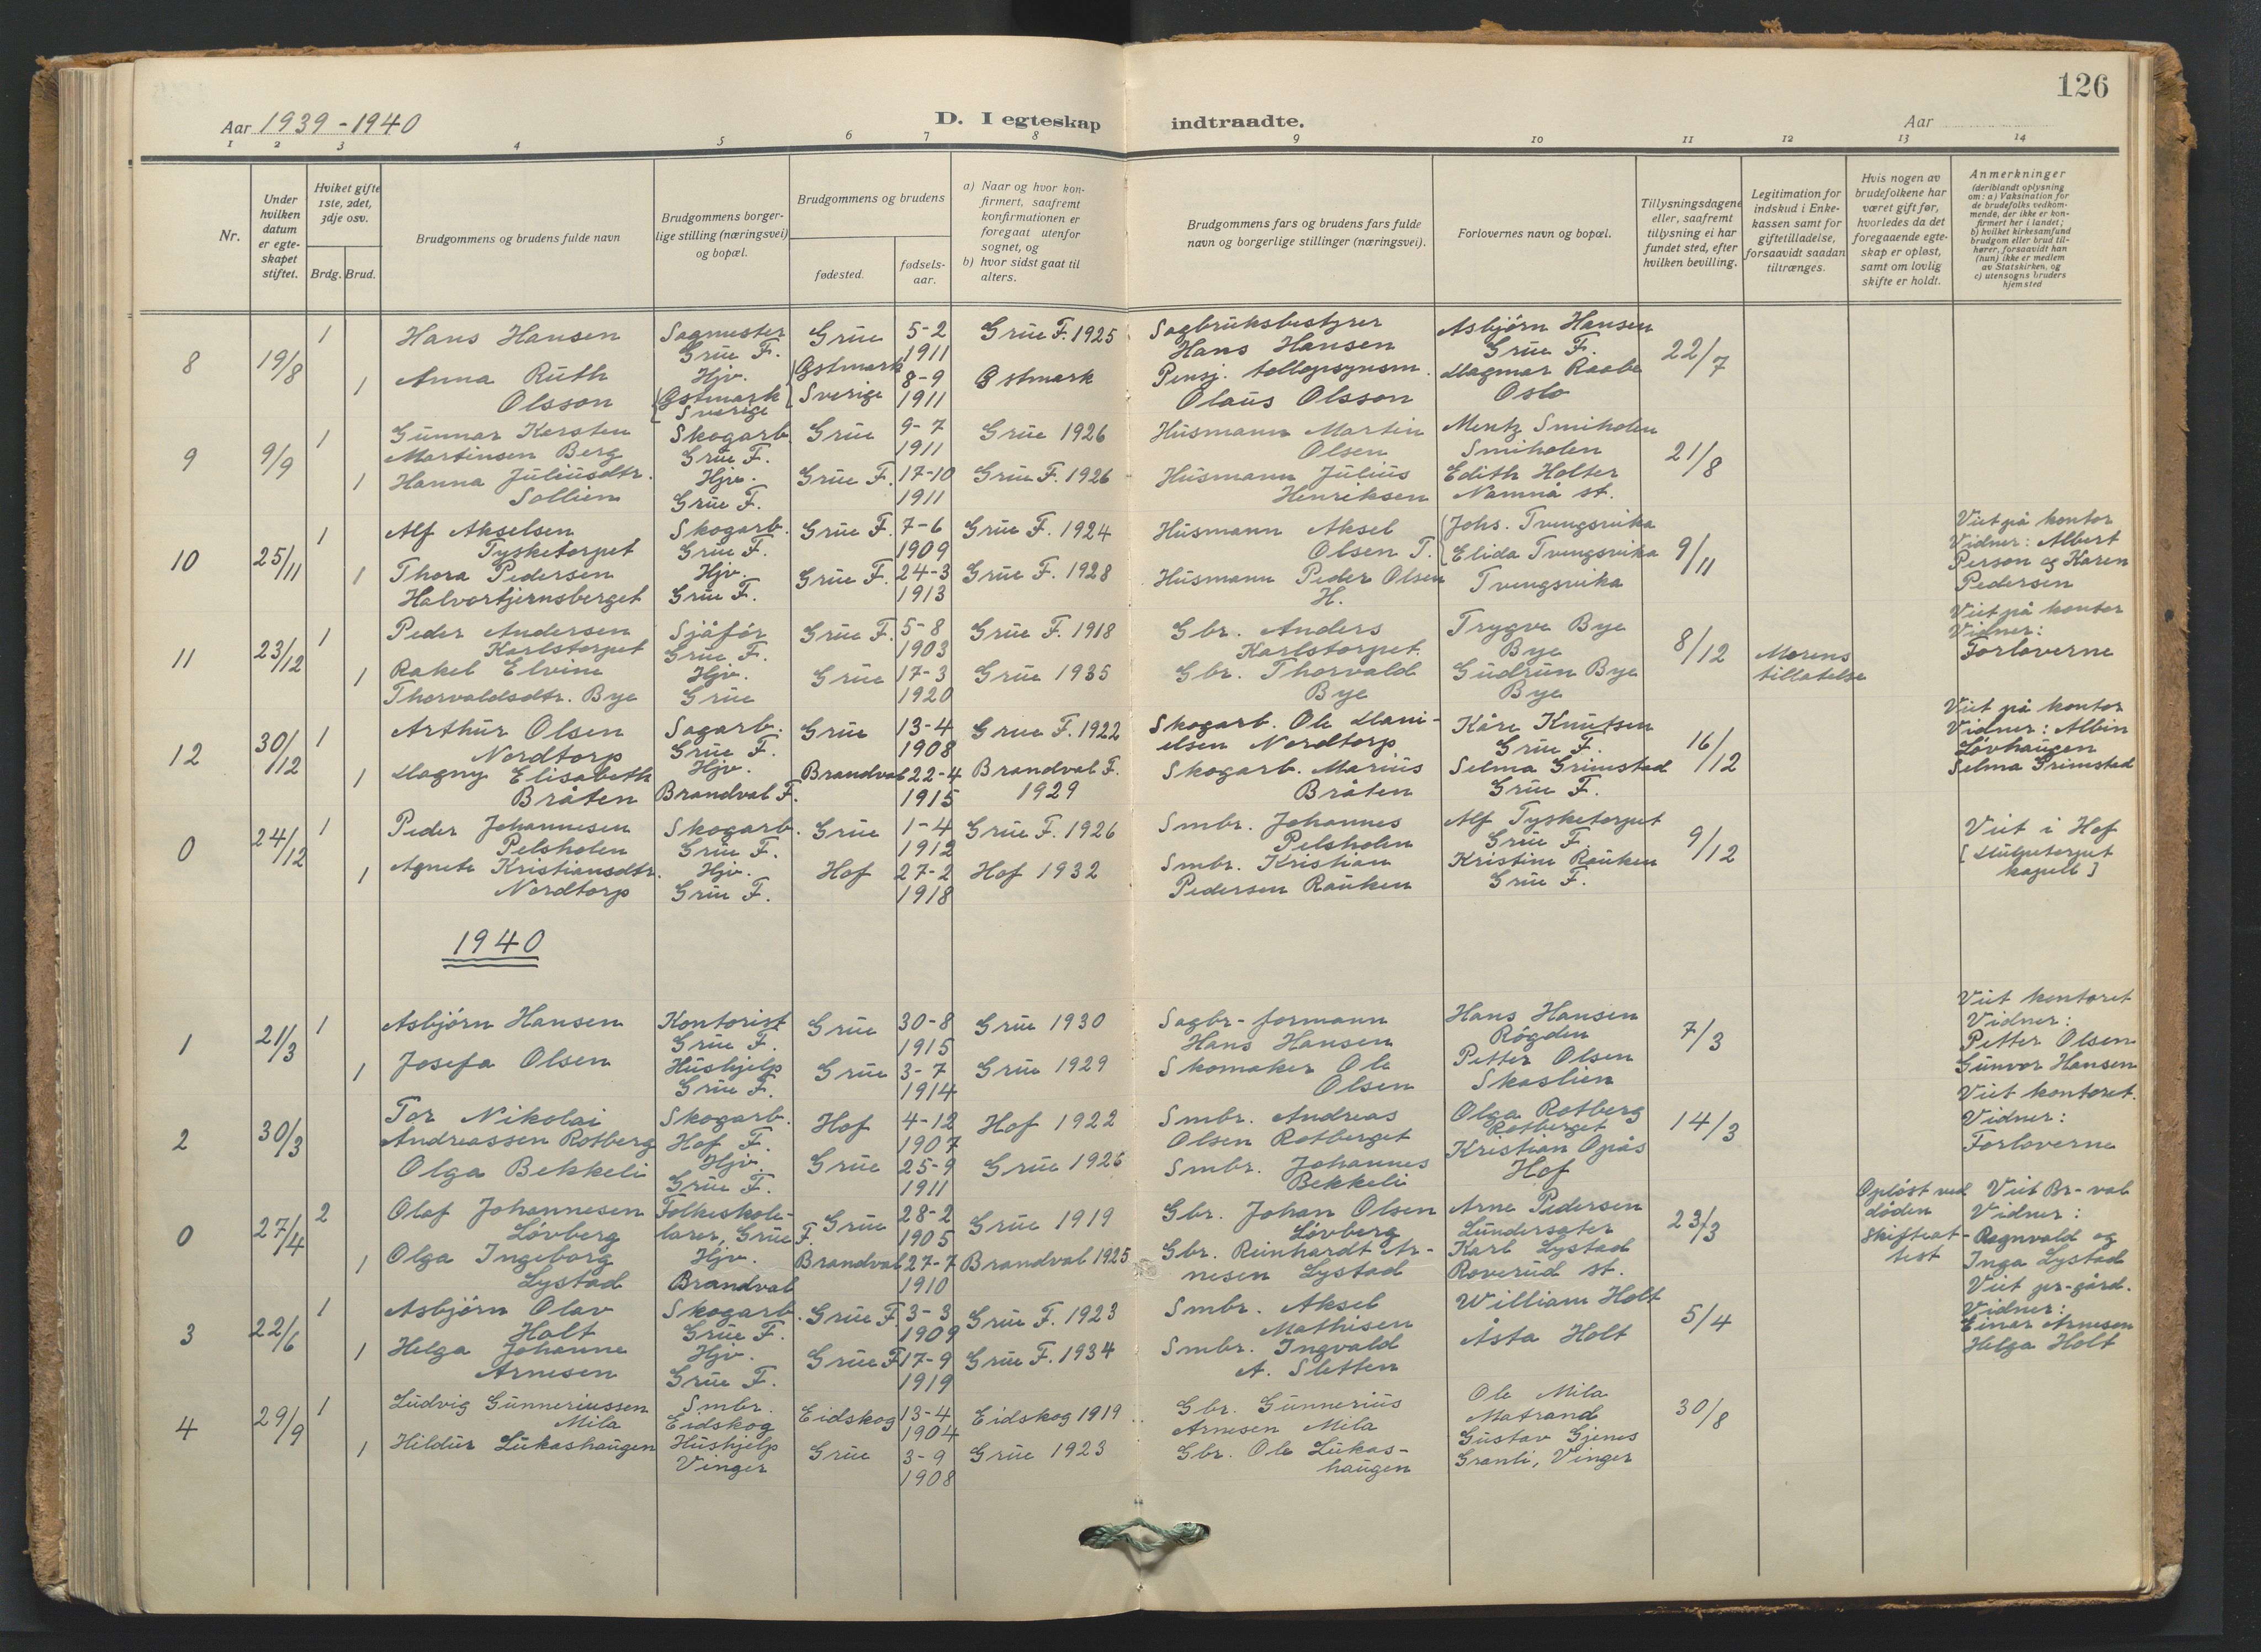 126
Aar 1939-1940
D. I egteskap indtraadte.
Aar
1 2 3 4 5 6 7 8 9 10 11 12 13 14
Nr.
Under hvilken datum er egteskapet stiftet.
Hvilket gifte 1ste, 2det, 3dje osv.
Brdg. Brud.
Brudgommens og brudens fulde navn
Brudgommens borgerlige stilling (næringsvei) og bopæl.
Brudgommens og brudens
fødested.
fødselsaar.
a) Naar og hvor konfirmert, saafremt konfirmationen er foregaat utenfor sognet, og
b) hvor sidst gaat til alters.
Brudgommens fars og brudens fars fulde navn og borgerlige stillinger (næringsvei).
Forlovernes navn og bopæl.
Tillysningsdagene eller, saafremt tillysning ei har fundet sted, efter hvilken bevilling.
Legitimation for indskud i Enkekassen samt for giftetilladelse, forsaavidt saadan tiltrænges.
Hvis nogen av brudefolkene har været gift før, hvorledes da det foregaaende egteskap er opløst, samt om lovlig skifte er holdt.
Anmerkninger
(deriblandt oplysning om: a) Vaksination for de brudefolks vedkommende, der ikke er konfirmert her i landet;
b) hvilket kirkesamfund brudgom eller brud tilhører, forsaavidt han (hun) ikke er medlem av Statskirken, og
c) utensogns bruders hjemsted
8 19/8 1 Hans Hansen Sagmester Grue F. Grue 5-2 1911 Grue F. 1925 Sagbruksbestyrer Hans Hansen Asbjørn Hansen Grue F. 22/7
1 Anna Ruth Olsson Hjv. Östmark Sverige Östmark Sverige 8-9 1911 Östmark Pensj. Olaus Olsson Dagmar Raabe Oslo
9 9/9 1 Gunnar Kersten Martinsen Berg Skogarb. Grue F. Grue 9-7 1911 Grue 1926 Husmann Martin Olsen Mentz Smiholen Smiholen 21/8
1 Hanna Juliusdtr. Sollien Hjv. Grue F. Grue F. 17-10 1911 Grue F. 1926 Husmann Julius Henriksen Edith Holter Namnå st.
10 25/11 1 Alf Akselsen Tysketorpet Skogarb. Grue F. Grue F. 7-6 1909 Grue F. 1924 Husmann Aksel Olsen T. Johs. Tvengsvika Elida Tvengsvika 9/11 Viet på kontor Vidner: Albert Person og Karen Pedersen
1 Thora Pedersen Halvortjernsberget Hjv. Grue F. Grue F. 24-3 1913 Grue F. 1928 Husmann Peder Olsen H. Tvengsvika
11 23/12 1 Peder Andersen Karlstorpet Sjåfør Grue F. Grue F. 5-8 1903 Grue F. 1918 Gbr. Anders Karlstorpet. Trygve Bye Bye 8/12 Morens tillatelse Viet på kontor Vidner: Forloverne
1 Rakel Elvine Thorvaldsdtr. Bye Hjv. Grue Grue 17-3 1920 Grue 1935 Gbr. Thorvald Bye Gudrun Bye Bye
12 30/12 1 Arthur Olsen Nordtorp Sagarb. Grue F. Grue 13-4 1908 Grue F. 1922 Skogarb. Ole Danielsen Nordtorp Kåre Knutsen Grue F. 16/12 Viet på kontor Vidner: Albin Løvhaugen Selma Grimstad
1 Magny Elisabeth Bråten Hjv. Brandval F. Brandval 22-4 1915 Brandval F. 1929 Skogarb. Marius Bråten Selma Grimstad Grue F.
0 24/12 1 Peder Johannesen Pelsholen Skogarb. Grue F. Grue 1-4 1912 Grue F. 1926 Smbr. Johannes Pelsholen Alf Tysketorpet Grue F. 9/12 Viet i Hof [ kapell]
1 Agnete Kristiansdtr. Nordtorp Hjv. Grue F. Hof 27-2 1918 Hof 1932 Smbr. Kristian Pedersen Rauken Kristine Rauken Grue F.
1940
1 21/3 1 Asbjørn Hansen Kontorist Grue F. Grue 30-8 1915 Grue 1930 Sagbr-formann Hans Hansen Hans Hansen Røgden 7/3 Viet kontoret Vidner: Petter Olsen Gunvor Hansen
1 Josefa Olsen Hushjelp Grue F. Grue 3-7 1914 Grue 1929 Skomaker Ole Olsen Petter Olsen Skaslien
2 30/3 1 Tor Nikolai Andreassen Rotberg Skogarb. Hof F. Hof 4-12 1907 Hof 1922 Smbr. Andreas Olsen Rotberget Olga Rotberg Rotberget 14/3 Viet kontoret. Vidner: Forloverne
Olga Bekkeli Hjv. Grue F. Grue 25-9 1911 Grue 1926 Smbr. Johannes Bekkeli Kristian Opås Hof
0 27/4 2 Olaf Johannesen Løvberg Folkeskolelærer, Grue F. Grue 28-2 1905 Grue 1919 Gbr. Johan Olsen Løvberg Arne Pedersen Lundersæter 23/3 Opløst ved døden Skifteattest Viet Br-val Vidner: Ragnvald og Inga Lystad
1 Olga Ingeborg Lystad Hjv. Brandval Brandval 27-7 1910 Brandval 1925 Gbr. Reinhardt Arnesen Lystad Karl Lystad Roverud st.
3 22/6 1 Asbjørn Olav Holt Skogarb. Grue F. Grue F. 3-3 1909 Grue F. 1923 Smbr. Aksel Mathisen William Holt 5/4 Viet pr-gård. Vidner: Einar Arnesen Helga Holt
1 Helga Johanne Arnesen Hjv. Grue F. Grue F 17-9 1919 Grue F. 1934 Smbr. Ingvald A. Sletten Åsta Holt
4 29/9 1 Ludvig Gunneriussen Mila Smbr. Eidskog Eidskog 13-4 1904 Eidskog 1919 Gbr. Gunnerius Arnesen Mila Ole Mila Matrand 30/8
1 Hildur Lukashaugen Hushjelp Vinger Grue 3-9 1908 Grue 1923 Gbr. Ole Lukashaugen Gustav Gjenes Granli, Vinger